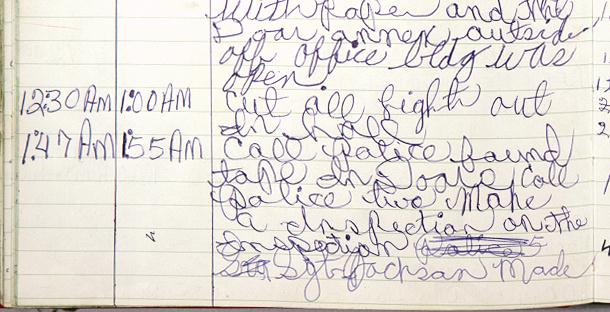 with Paper and the
Door annex outside
off office bldg was
open
12:30 AM 1:00 AM Cut all light out
In hall
1:47 AM 1:55 AM Call Police found
tape In Doore Call
Police two make
a Inspection on the
Inspection
Sgt Jackson Made